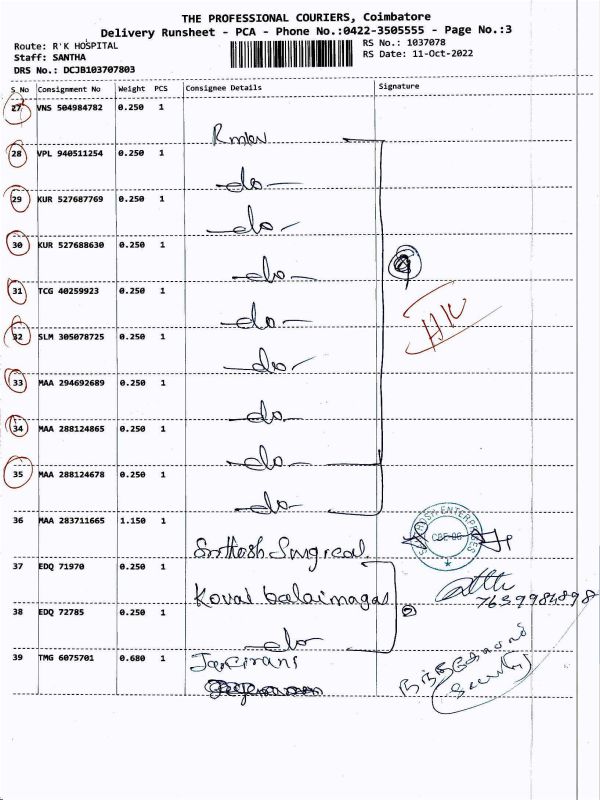 THE PROFESSIONAL COURIERS, Coimbatore
Delivery Runsheet - PCA - Phone No.:0422-3505555 - Page No.:3
Route: R'K HOSPITAL
Staff: SANTHA
DRS No.: DCJB103707803
RS No.: 1037078
RS Date: 11-Oct-2022
S No Consignment No Weight PCS Consignee Details Signature
27 VNS 504984782 0.250 1
28 VPL 940511254 0.250 1 -do-
29 KUR 527687769 0.250 1 -do-
30 KUR 527688630 0.250 1 -do-
31 TCG 40259923 0.250 1 -do-
32 SLM 305078725 0.250 1 -do-
33 MAA 294692689 0.250 1 -do-
34 MAA 288124865 0.250 1 -do-
35 MAA 288124678 0.250 1 -do-
36 MAA 283711665 1.150 1 Santhosh Surgical
37 EDQ 71970 0.250 1 Kovai
38 EDQ 72785 0.250 1 -do- 2
7639984898
39 TMG 6075701 0.680 1